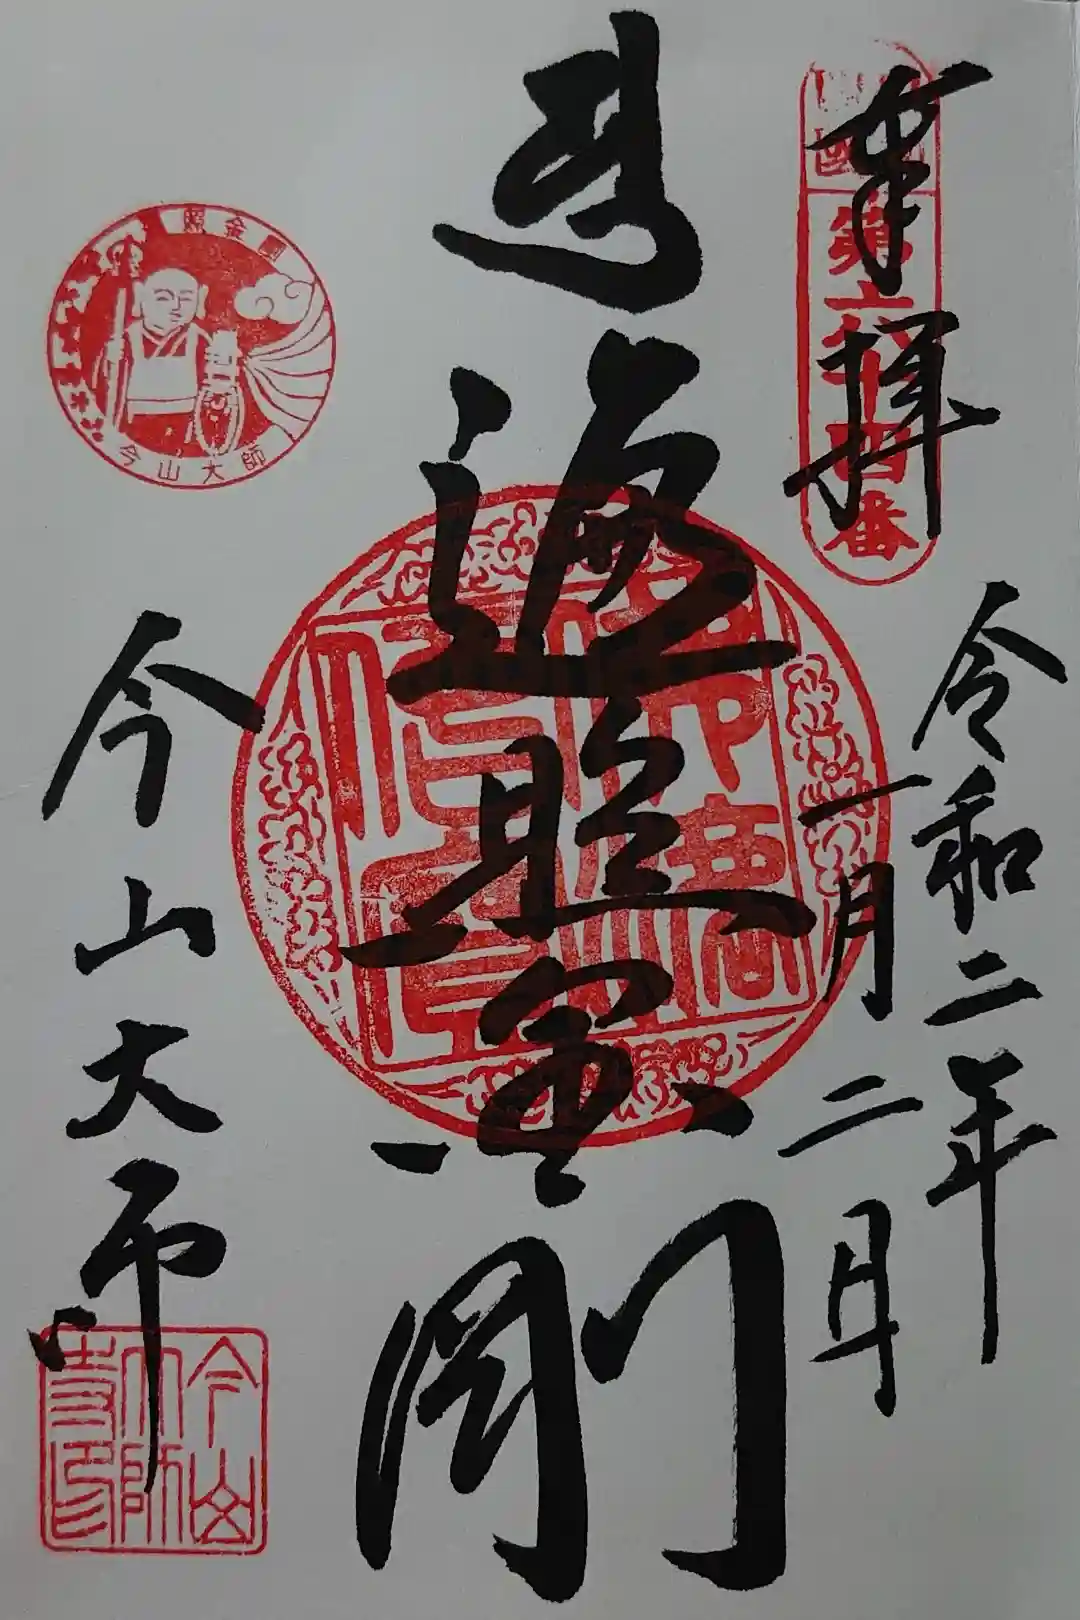 奉拝
令和二年
一月二日
遍照金剛
今山大師
第
番
今山大師
今山大師寺印